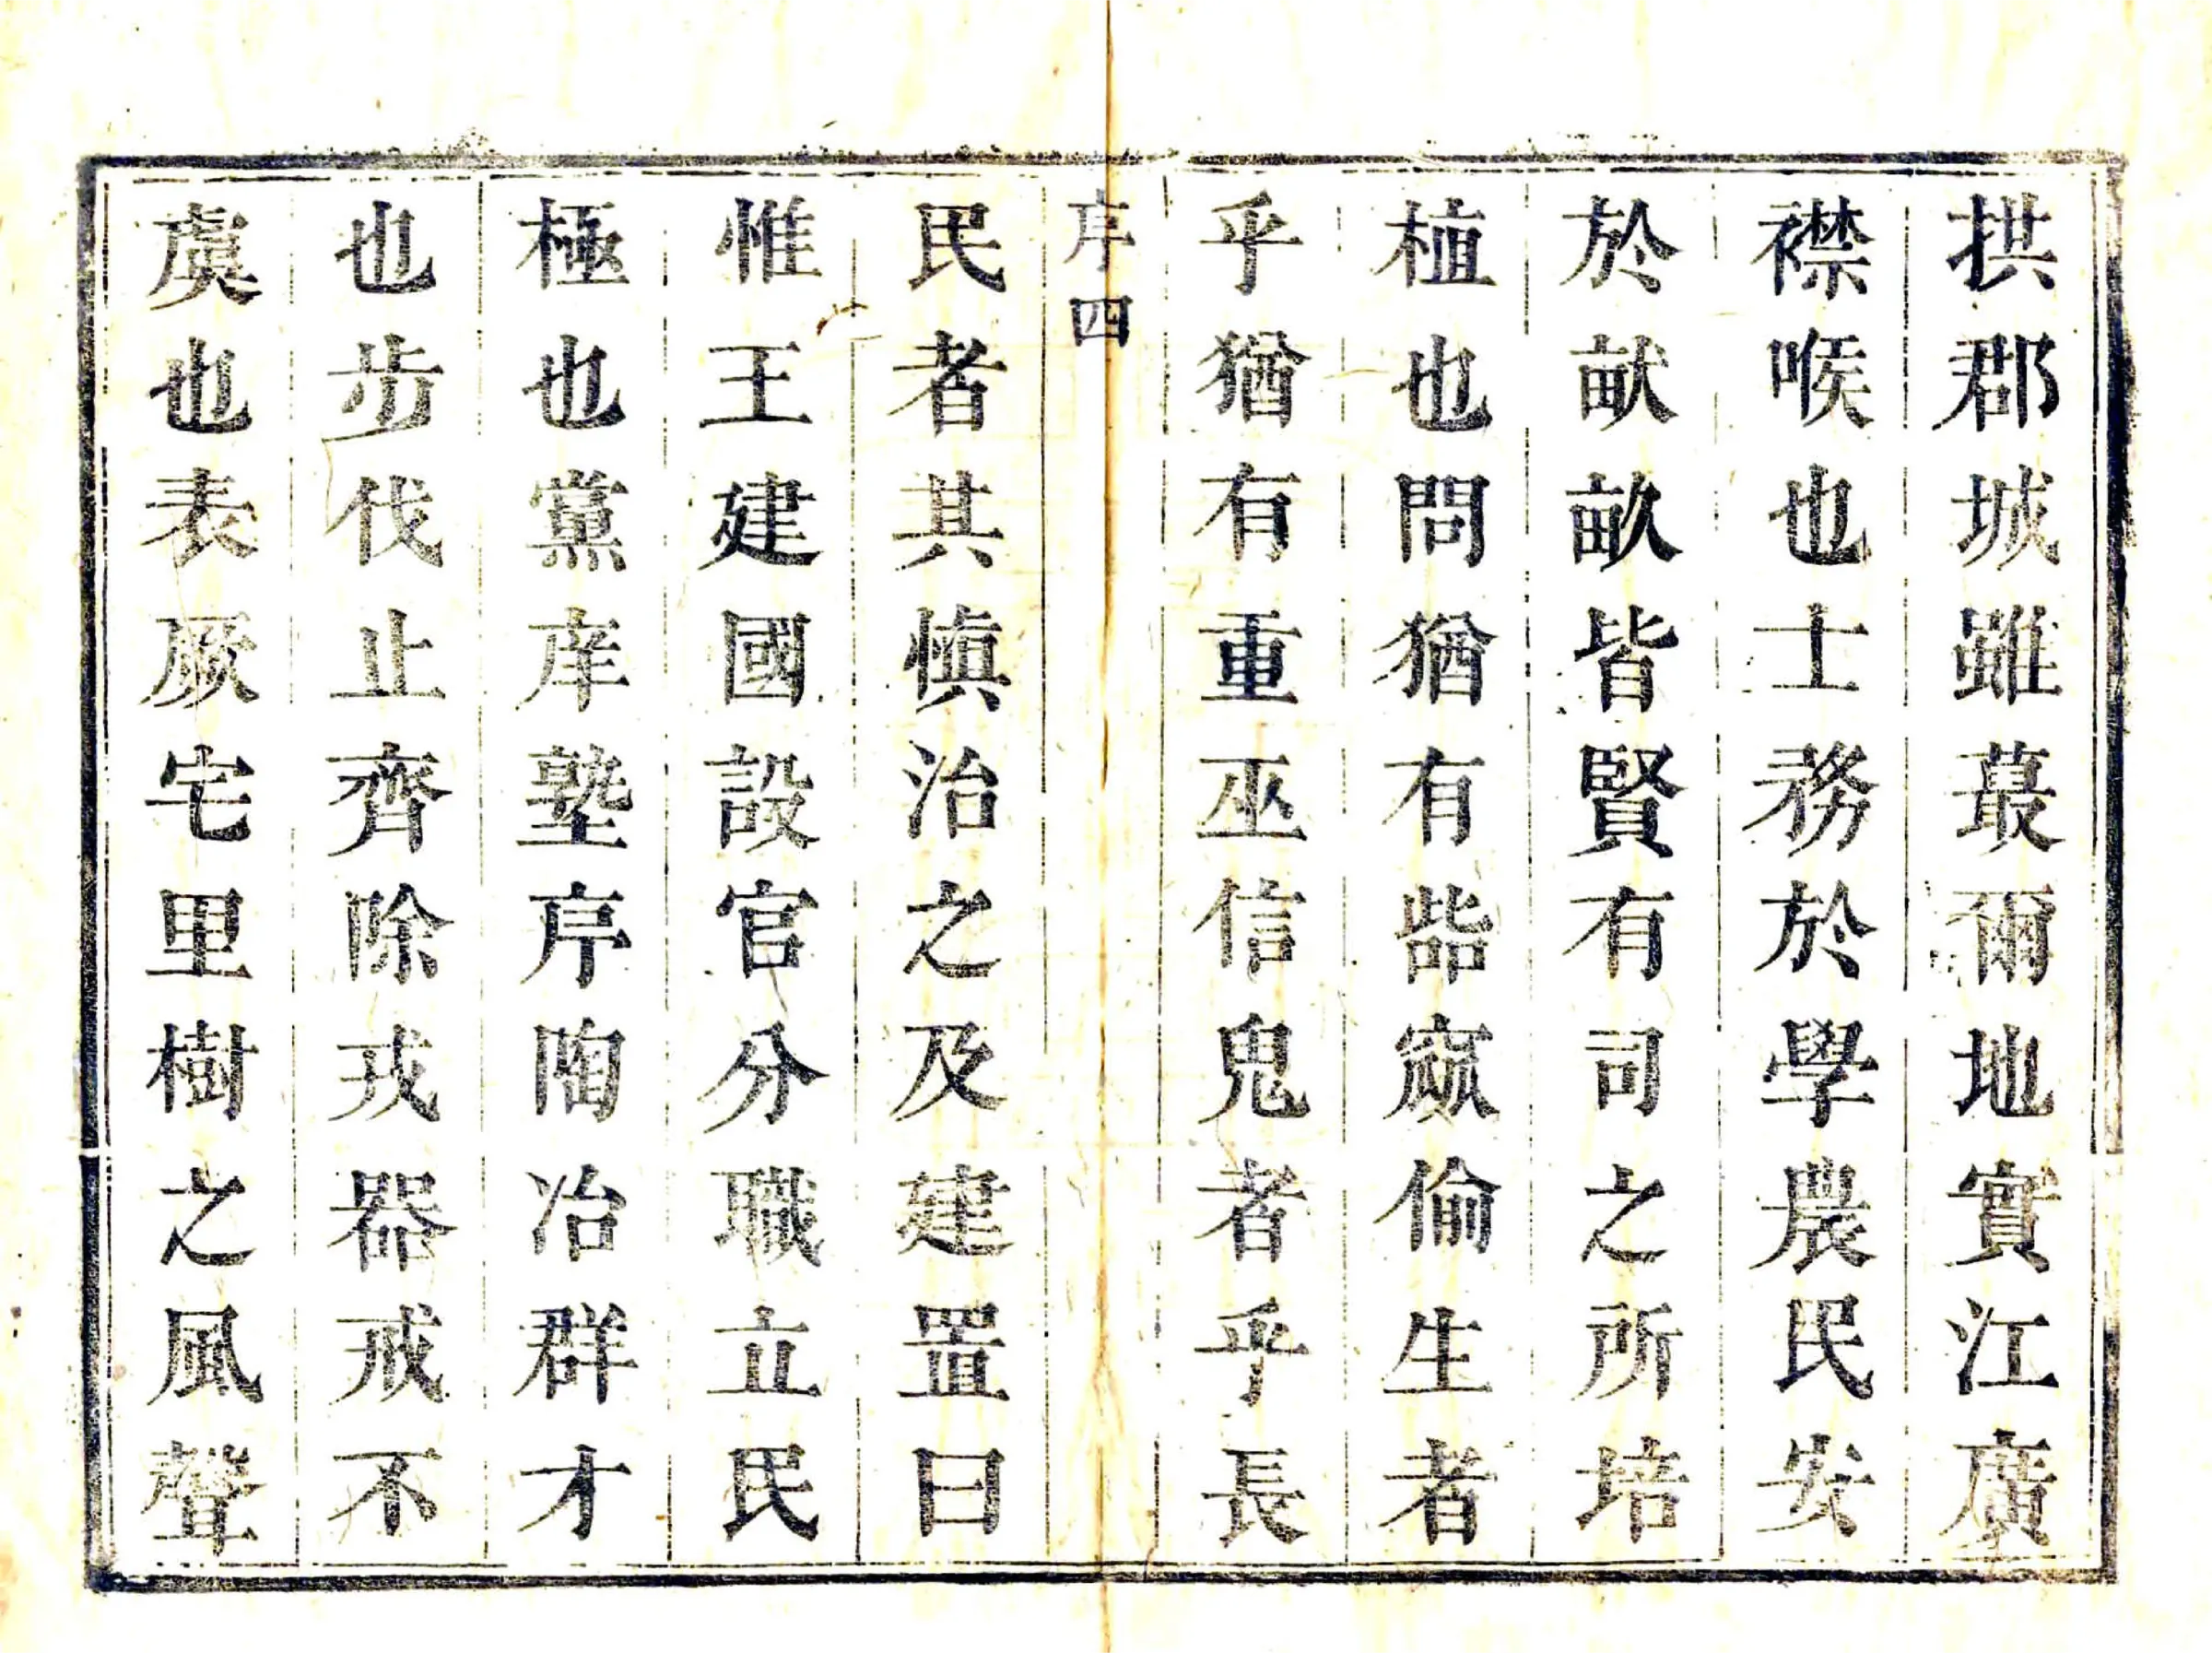 拱郡城雖蕞爾地實江廣
襟喉也士務於學農民安
於畎畝皆賢有司之所培
植也問猶有呰窳偷生者
乎猶有重巫信鬼者乎長
序四
民者其慎治之及建置曰
惟王建國設官分職立民
極也黨庠塾序陶冶群才
也步伐止齊除戎器戒不
虞也表厥宅里樹之風聲